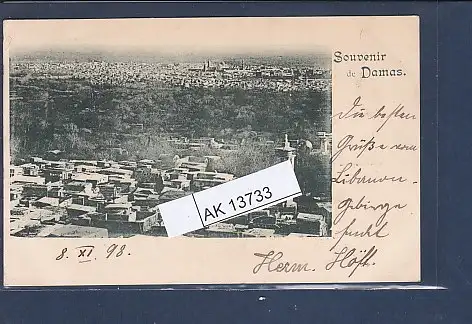 Souvenir
de Damas.
Die besten
Grüße vom
Libanon-
gebirge
sendet
Herm. Höft.
8. XI. 98.
AK 13733